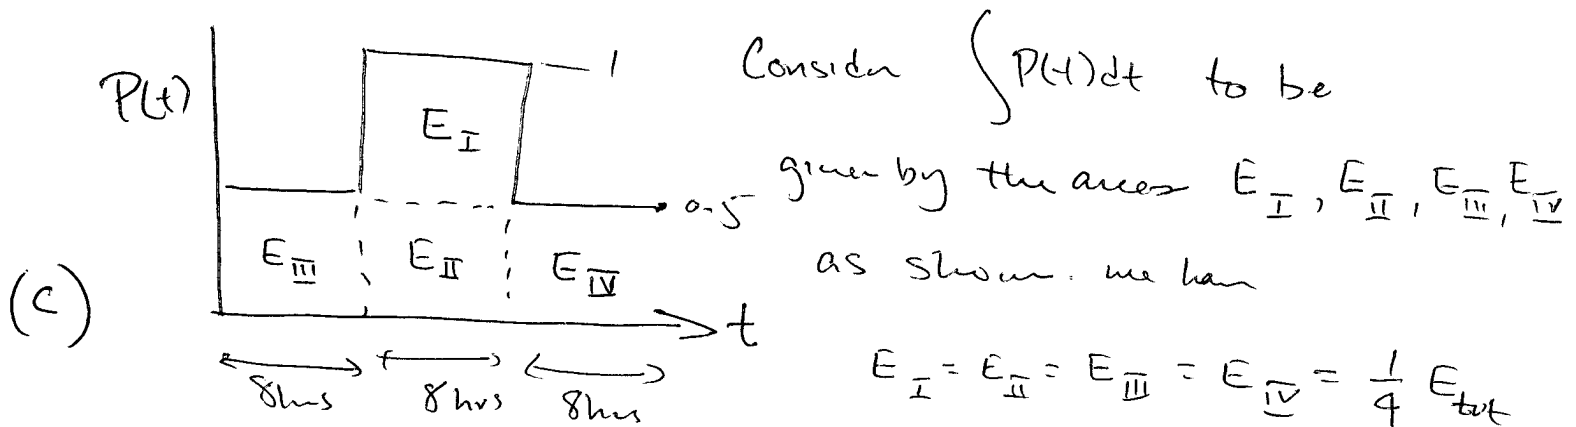 (c)
P(t)
1
0.5
E_I
E_III E_II E_IV
t
8hrs 8hrs 8hrs
Consider ∫P(t)dt to be
given by the areas E_I, E_II, E_III, E_IV
as shown. we have
E_I = E_II = E_III = E_IV = 1/4 E_tot